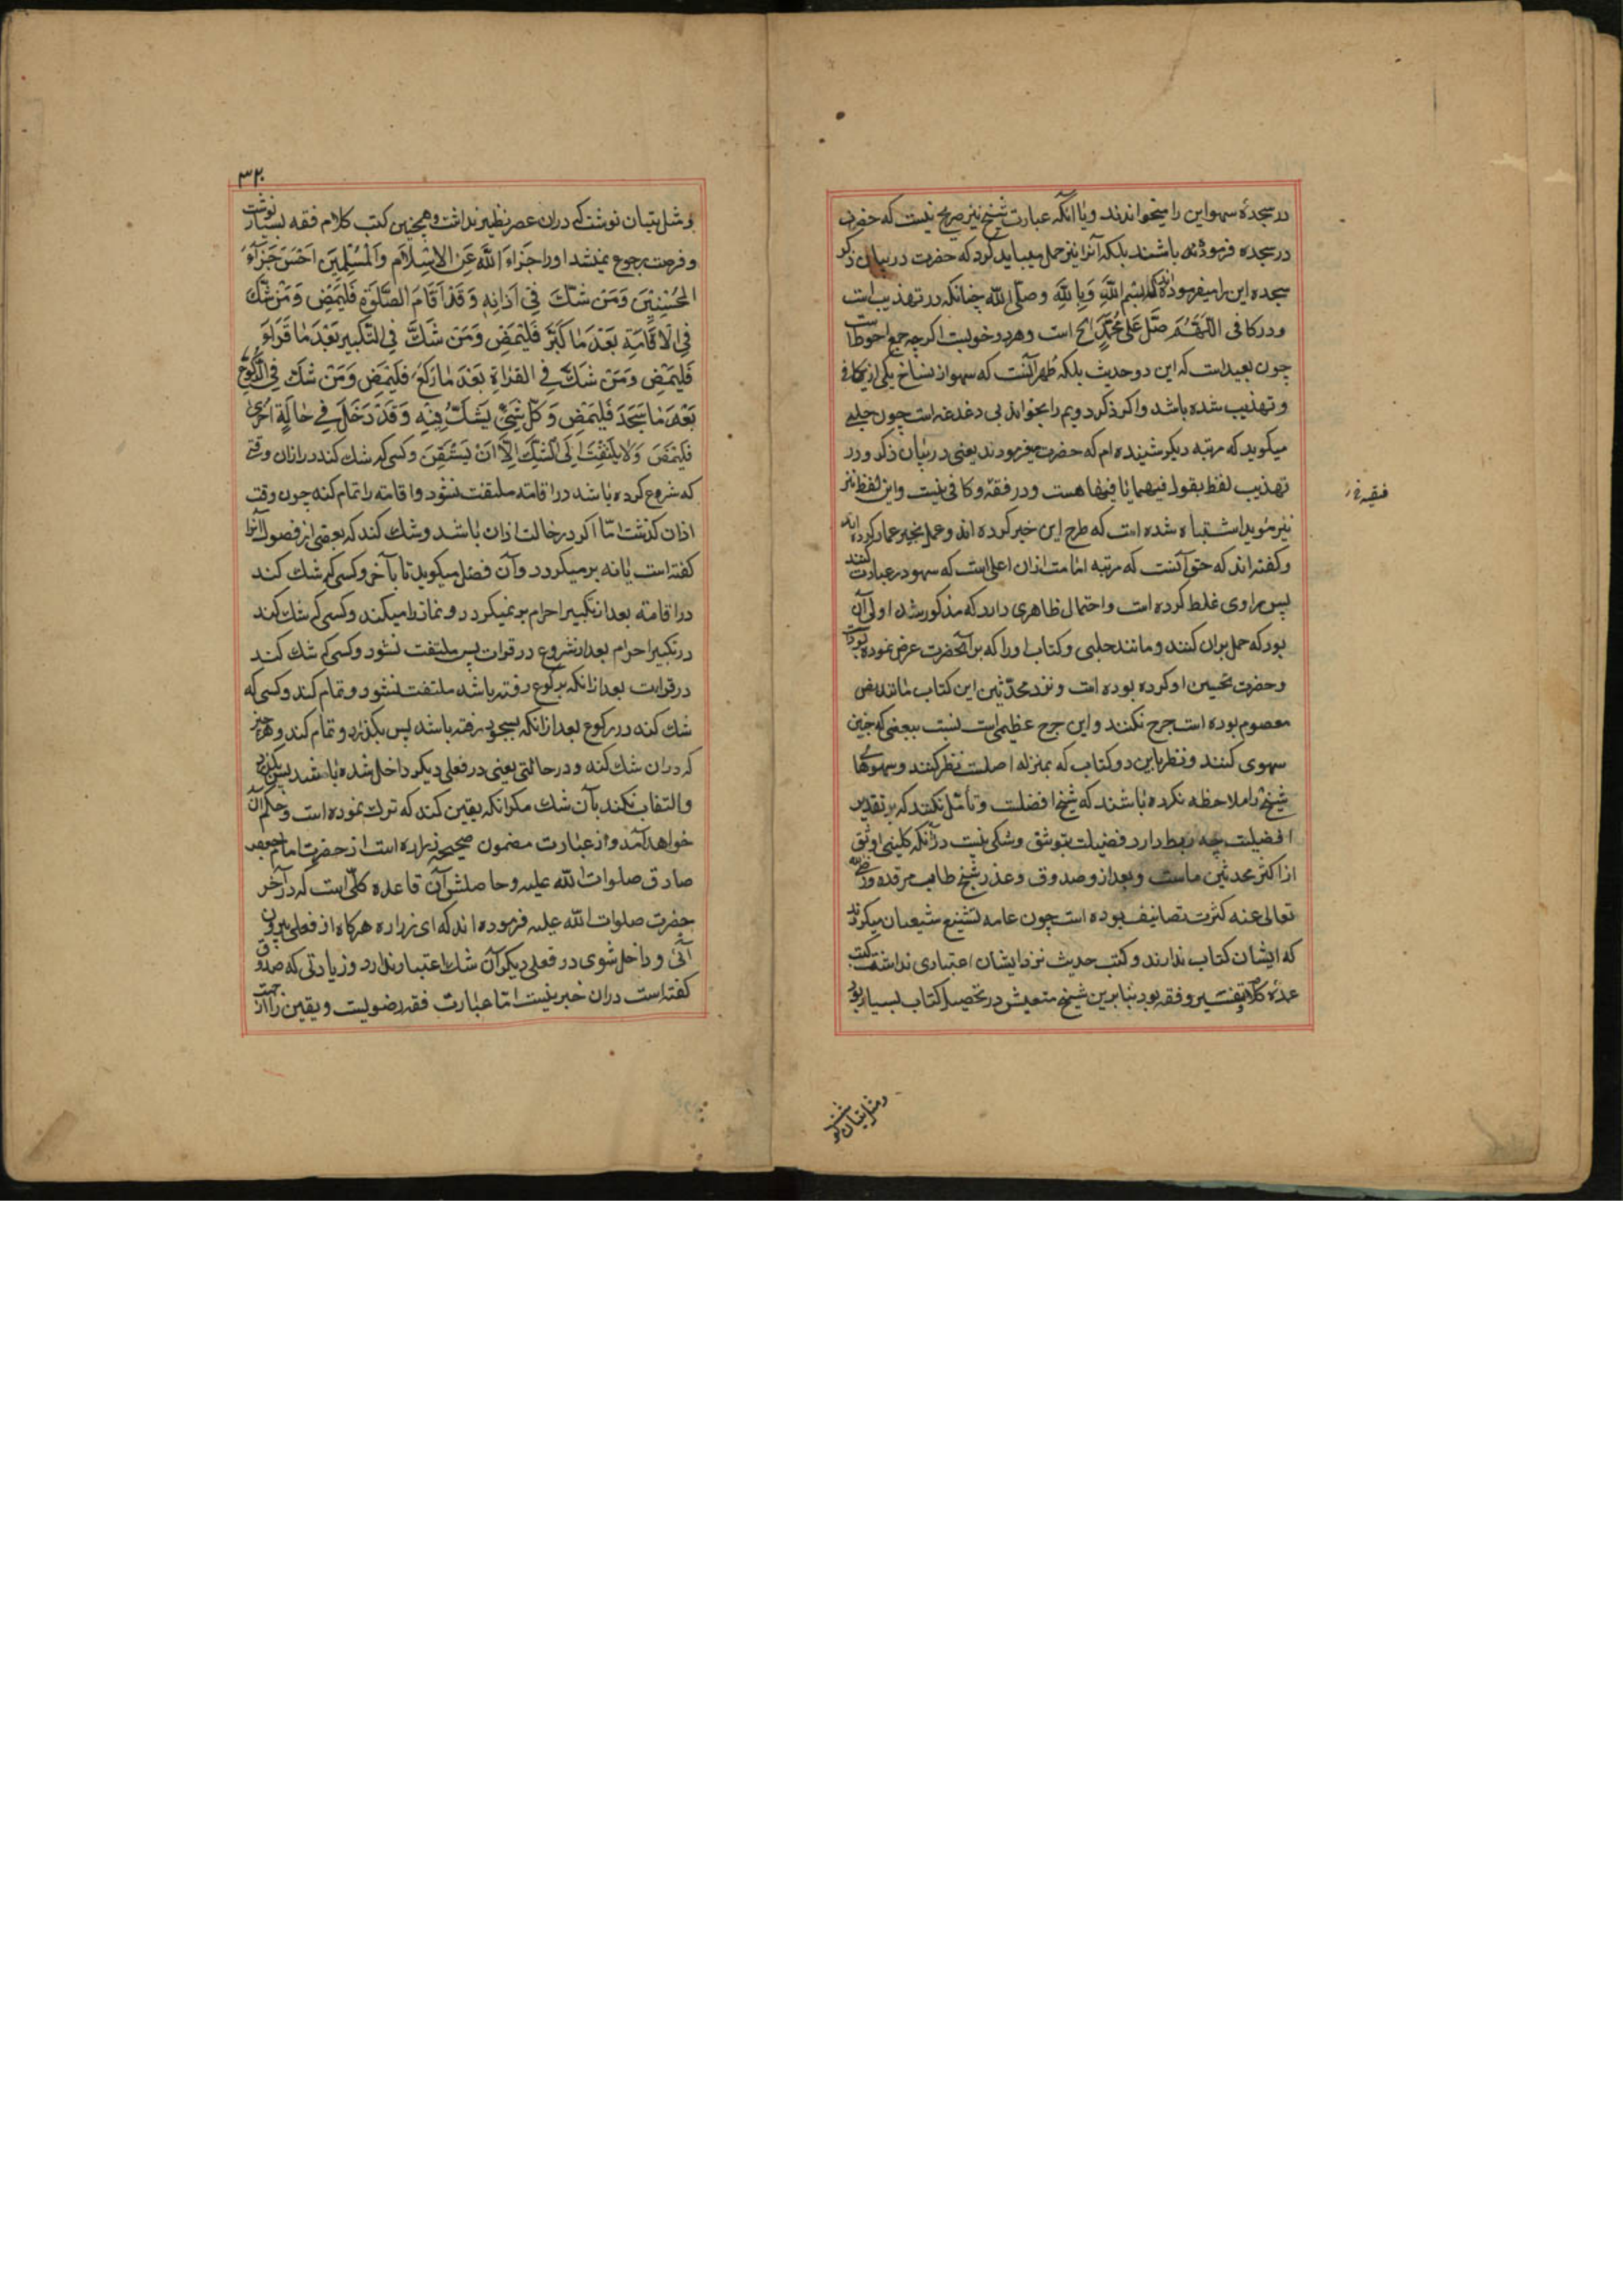 در سجدهٔ سهو این را میخواندند و یا آنکه عبارت شیخ نیز صریح نیست که حضرت
در سجده فرموده باشند بلکه آنرا نیز حمل میباید کرد که حضرت در بیان ذکر
سجده این را میفرموده‌اند که بسم اللّٰهِ وَبِاللّٰهِ وصلّی اللّٰه چنانکه در تهذیب است
ودر کافی اللّهُمَّ صَلِّ عَلیٰ مُحَمَّدٍ الخ است وهر دو خوبست اکرچه جمع احوط است
چون بعید است که این دو حدیث بلکه ظهر آنست که سهو از نساخ یکی از کافی
و تهذیب شده باشد واکر ذکر دویم را بخواند بی دغدغه است چون حلبی
میکوید که مرتبه دیکر شنیده ام که حضرت میفرمودند یعنی در بیان ذکر ودر
تهذیب لفظ یقول فیهما یا فیها هست ودر فقیه وکافی نیست واین لفظ نیز
فقیه
نیز مؤید اشتباه شده است که طرح این خبر کرده اند وعمل بخبر عمار کرده اند
وکفته اند که حق آنست که مرتبه امامت ازان اعلی است که سهو در عبادت کنند
پس راوی غلط کرده است واحتمال ظاهری دارد که مذکور شد اولی آن
بود که حمل بران کنند ومانند حلبی وکتاب او را که بر آنحضرت عرض نموده بود
وحضرت تحسین او کرده بوده است ونزد محدّثین این کتاب مانند نص
معصوم بوده است جرح نکنند واین جرح عظیمی است نسبت ببعضی که چنین
سهوی کنند ونظر باین دو کتاب که بمنزله اصلست نظر کنند وسهوهای
شیخ را ملاحظه نکرده باشند که شیخ افضلست وتأمّل نکنند که بر تقدیر
افضلیت چه ربط دارد فضیلت بتوثق وشکی نیست در آنکه کلینی اوثق
از اکثر محدثین ماست وبعد از و صدوق وعذر شیخ طاب مرقده ورضی الله
تعالی عنه کثرت تصانیف بوده است چون عامه تشنیع شیعیان میکردند
که ایشان کتاب ندارند وکتب حدیث نزد ایشان اعتباری نداشت کتب
عمدهٔ کلام وتفسیر وفقه بود بنا برین شیخ متعیش در تحصیل کتاب بسیار بود
ومثل تبیان نوشت
۳۲۰
ومثل تبیان نوشت که دران عصر نظیر نداشت وهمچنین کتب کلام فقه بسیار نوشت
وفرصت رجوع نمیشد اورا جَزاءَ اللّٰهُ عَنِ الاِسْلامِ وَالْمُسْلِمِینَ اَحْسَنَ جَزآءِ
المُحْسِنِیْنَ وَمَنْ شَكَّ فِی اَذانِهٖ وَقَدْ اَقَامَ الصَّلٰوةَ فَلْیَمْضِ وَمَنْ شَكَّ
فِی الْاِقَامَةِ بَعْدَ مٰا كَبَّرَ فَلْیَمْضِ وَمَنْ شَكَّ فِی التَّكْبِیرِ بَعْدَ مٰا قَرَاَ
فَلْیَمْضِ وَمَنْ شَكَّ فِی القِرٰاةِ بَعْدَ مٰا رَكَعَ فَلْیَمْضِ وَمَنْ شَكَّ فِی الرُّكُوْعِ
بَعْدَ مٰا سَجَدَ فَلْیَمْضِ وَكُلُّ شَیْءٍ یَشُكُّ فِیْهِ وَقَدْ دَخَلَ فِی حٰالَةٍ اُخْریٰ
فَلْیَمْضِ وَلا یَلْتَفِتْ اِلَی الشَّكِّ اِلّٰا اَنْ یَسْتَیْقِنَ وکسی که شك کند در اذان وقتی
که شروع کرده باشد در اقامته ملتفت نشود واقامته را تمام کند چون وقت
اذان کذشت امّا اکر در حالت اذان باشد وشك کند که بعضی از فصول آنرا
کفته است یا نه بر میکردد وآن فصل میکوید تا بآخر وکسی که شك کند
در اقامته بعد از تکبیر احرام بر نمیکردد ونماز را میکند وکسی که شك کند
در تکبیر احرام بعد از شروع در قرات پس ملتفت نشود وکسی که شك کند
در قرایت بعد از انکه برکوع رفته باشد ملتفت نشود وتمام کند وکسی که
شك کند در رکوع بعد از انکه بسجود رفته باشد پس بکذرد وتمام کند وهر چیز
که دران شك کند ودر حالتی یعنی در فعلی دیکر داخل شده باشد پس بکذرد
والتفات نکند بآن شك مکر انکه یقین کند که ترك نموده است وحکم آن
خواهد آمد واز عبارت مضمون صحیحه زراره است از حضرت امام جعفر
صادق صلوات اللّٰه علیه وحاصلش آن قاعده کلّی است که در آخر
حضرت صلوات اللّٰه علیه فرموده اند که ای زراره هرکاه از فعلی بیرون
آئی وداخل شوی در فعلی دیکر آن شك اعتبار ندارد وزیادتی که صدوق
کفته است دران خبر نیست امّا عبارت فقه رضویست ویقین را از جهت